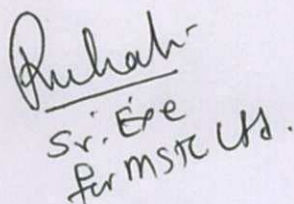 Sr. Exe
for MSTC Ltd.